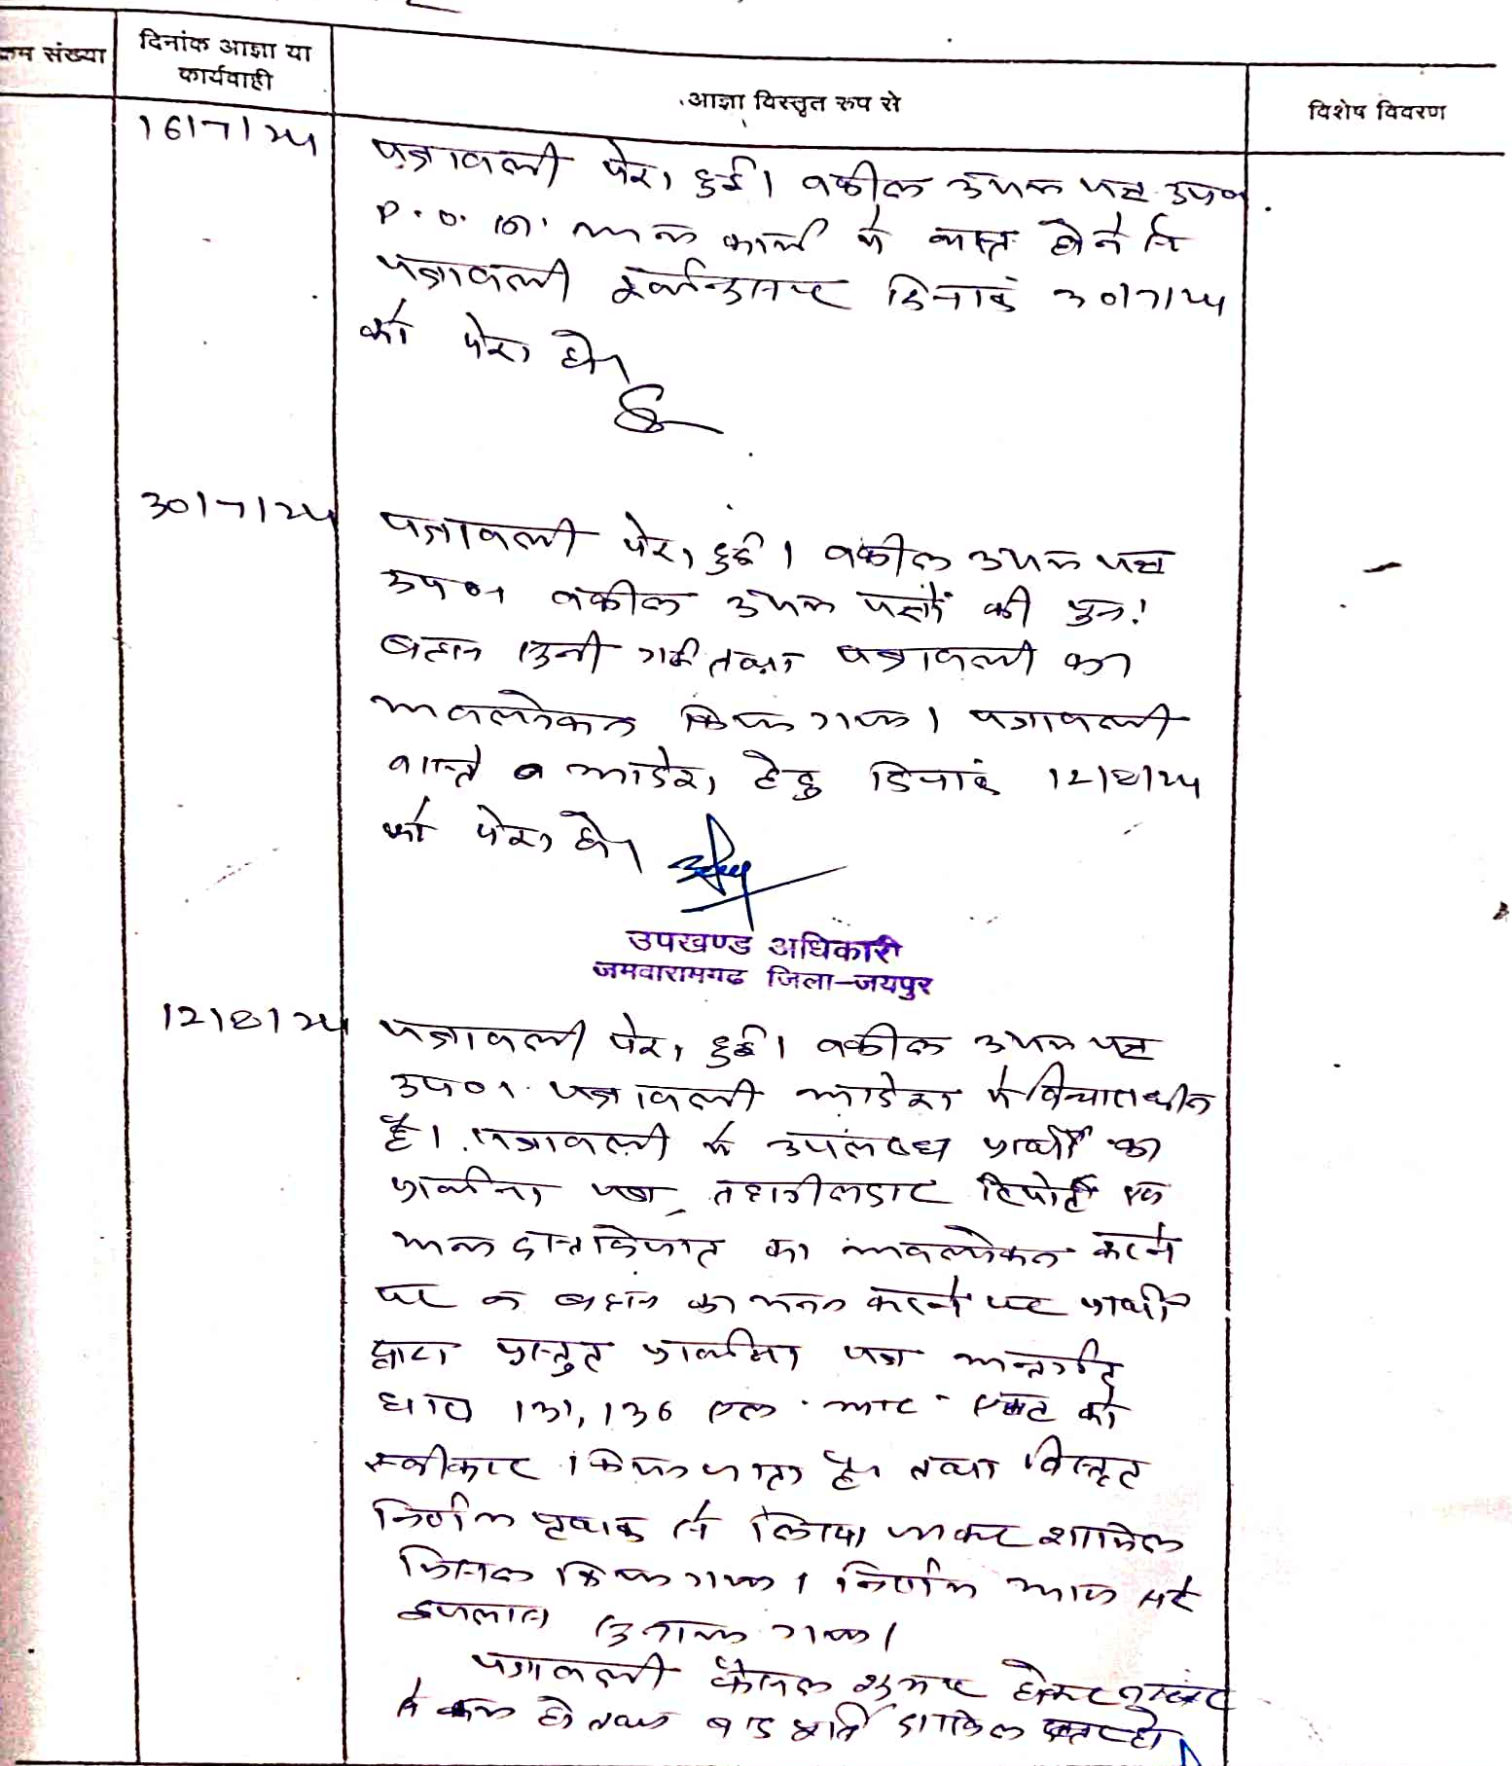 क्रम संख्या
दिनांक आज्ञा या
कार्यवाही
आज्ञा विस्तृत रुप से
विशेष विवरण
16/7/24
पत्रावली पेश हुई। वकील उभय पक्ष उप०
P.O. सा. अन्य कार्य में व्यस्त होने से
पत्रावली पूर्वानुसार दिनांक 30/7/24
को पेश हो।
30/7/24
पत्रावली पेश हुई। वकील उभय पक्ष
उप० वकील उभय पक्षों की पुन:
बहस सुनी गई तथा पत्रावली का
अवलोकन किया गया। पत्रावली
वास्ते आदेश हेतु दिनांक 12/8/24
को पेश हो।
उपखण्ड अधिकारी
जमवारामगढ जिला-जयपुर
12/8/24
पत्रावली पेश हुई। वकील उभय पक्ष
उप० पत्रावली आदेश में विचाराधीन
है। पत्रावली में उपलब्ध प्रार्थी का
प्रार्थना पत्र, तहसीलदार रिपोर्ट एवं
अन्य दस्तावेजात का अवलोकन करने
पर व बहस का मनन करने पर प्रार्थी
द्वारा प्रस्तुत प्रार्थना पत्र अन्तर्गत
धारा 131, 136 एल. आर. एक्ट को
स्वीकार किया जाता है। तथा विस्तृत
निर्णय पृथक से लिखा जाकर शामिल
मिसल किया गया। निर्णय आज सरे
इजलास सुनाया गया।
पत्रावली फैसल शुमार होकर नम्बर
से कम हो तथा बाद पूर्ति दाखिल दफ्तर हो।